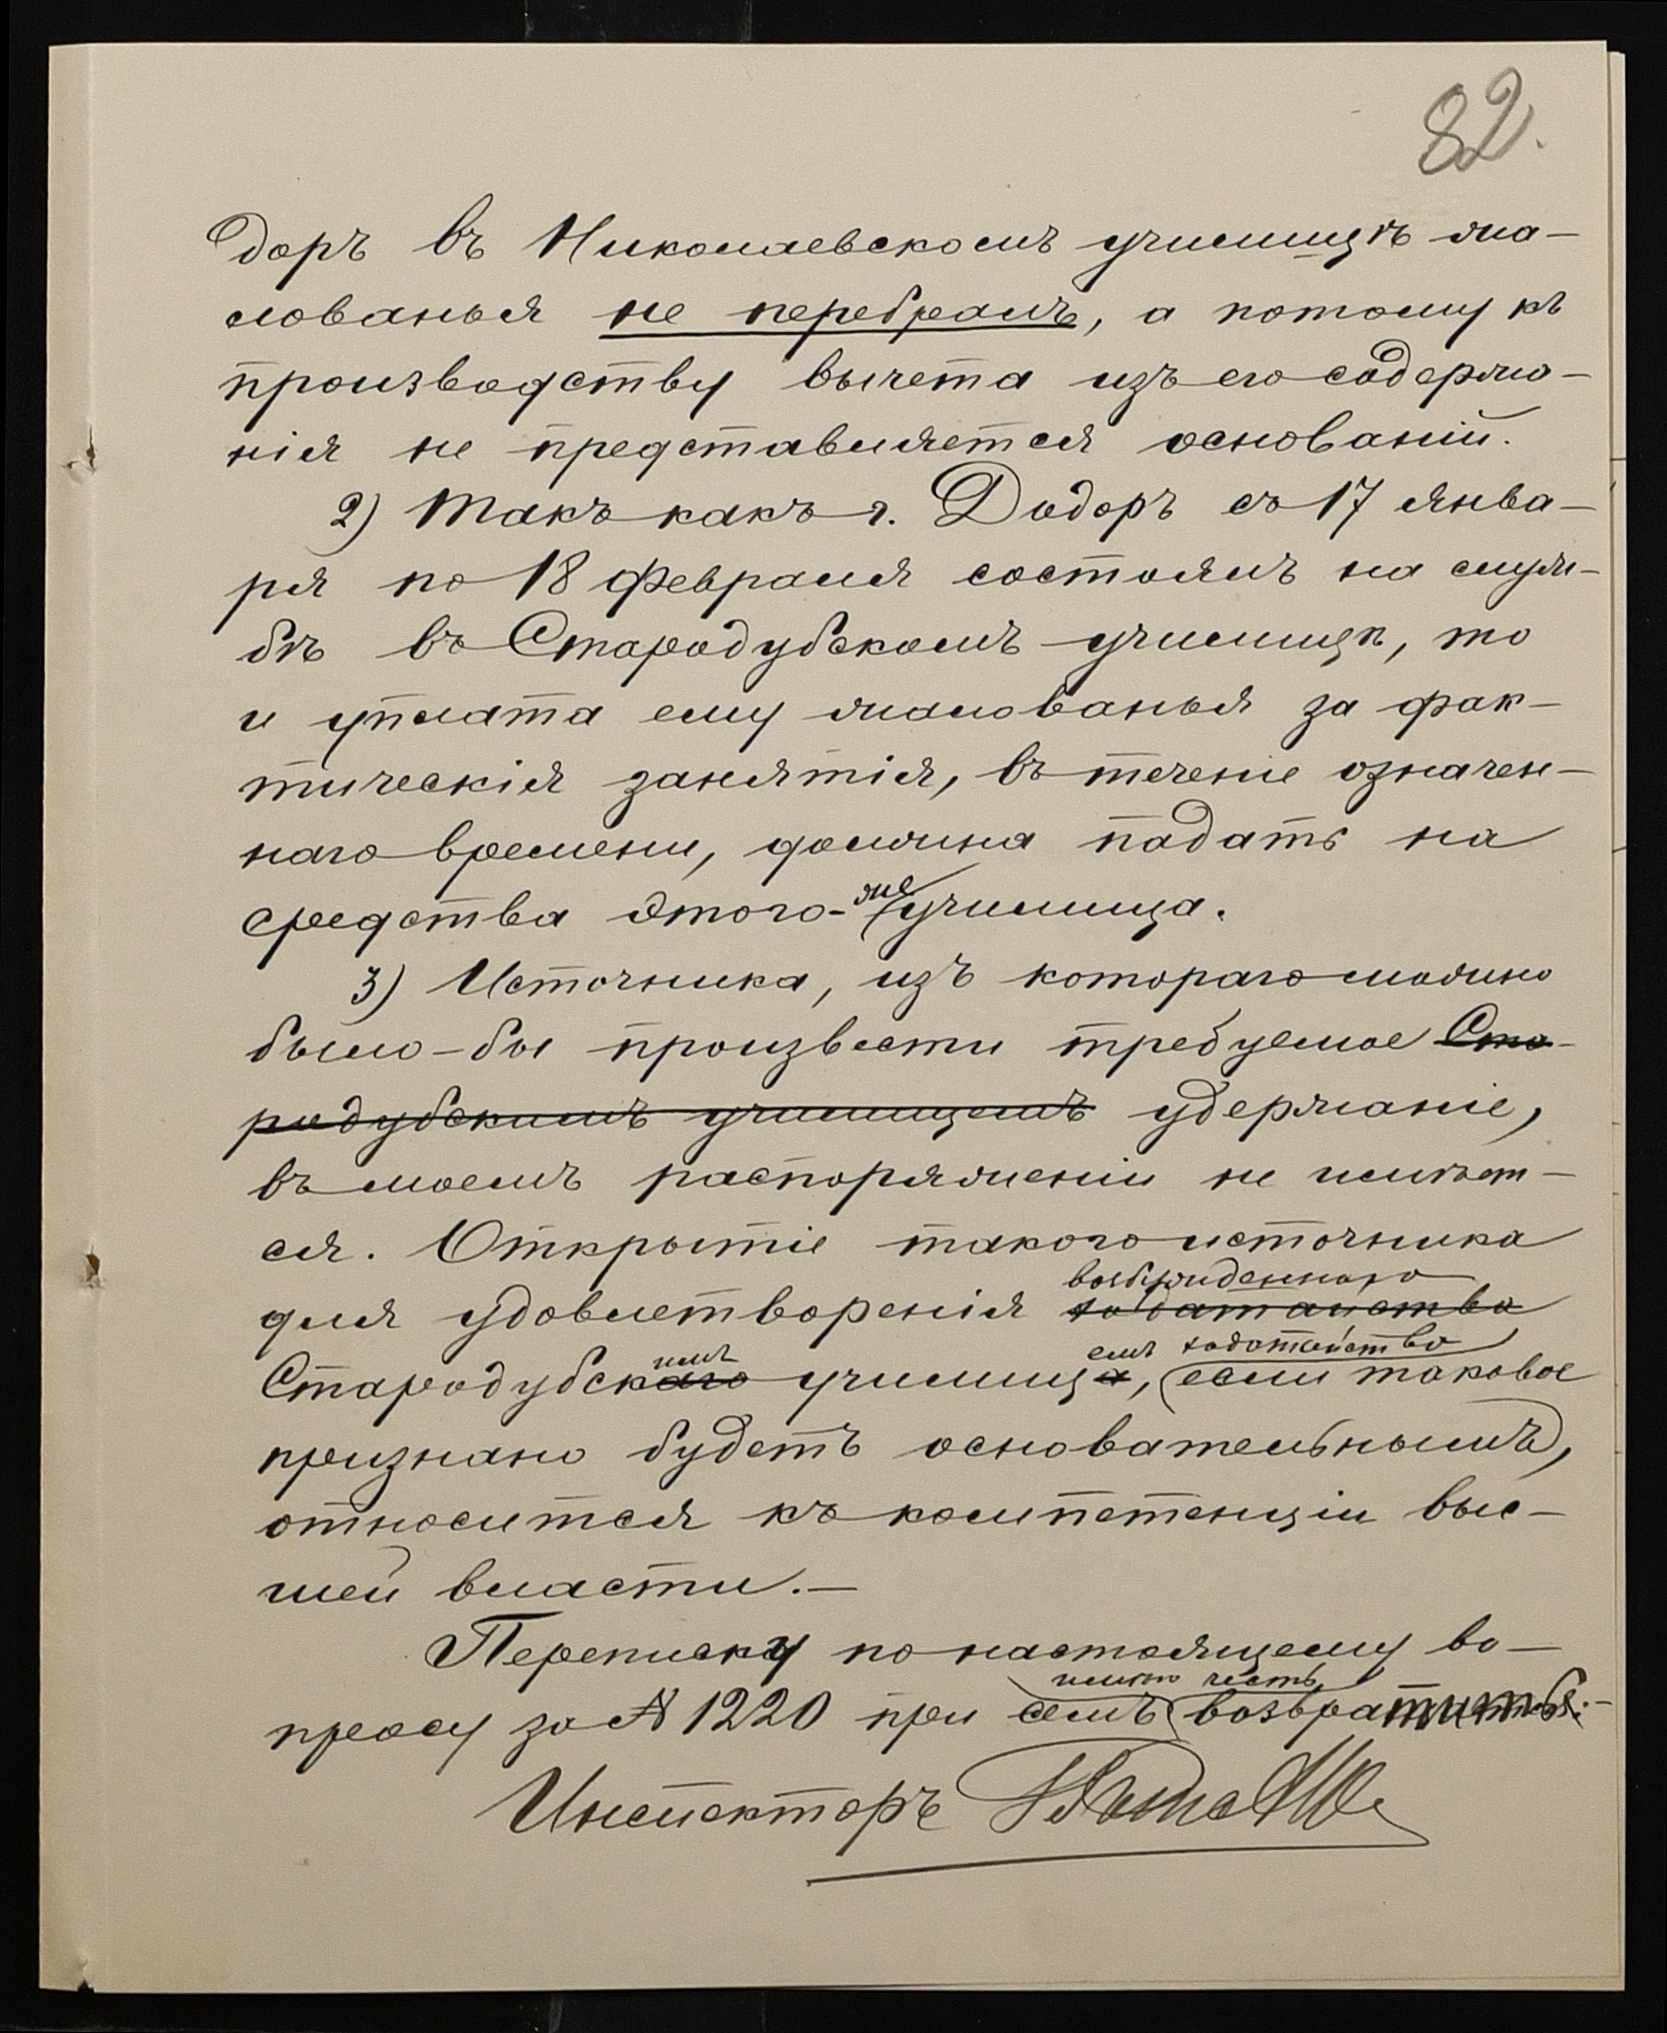 82.
доръ въ Николаевскомъ училищѣ жа-
лованья не перебралъ, а потому къ
производству вычета изъ его содержа-
нія не представляется основаній.
2) Такъ какъ г. Дидоръ съ 17 янва-
ря по 18 февраля состоялъ на служ-
бѣ въ Стародубскомъ училищѣ, то
и уплата ему жалованья за фак-
тическія занятія, въ теченіе означен-
наго времени, должна падать на
средства этого-же училища.
3) Источника, изъ котораго можно
было-бы произвести требуемое Ста-
родубскимъ училищемъ удержаніе,
въ моемъ распоряженіи не имѣет-
ся. Открытіе такого источника
возбужденнаго
для удовлетворенія ходатайства
имъ емъ ходатайства
Стародубскаго училища, если таковое
признано будетъ основательнымъ,
относится къ компетенціи выс-
шей власти.—
Переписку по настоящему во-
имѣю честь
просу за № 1220 при семъ возвратить.
Инспекторъ